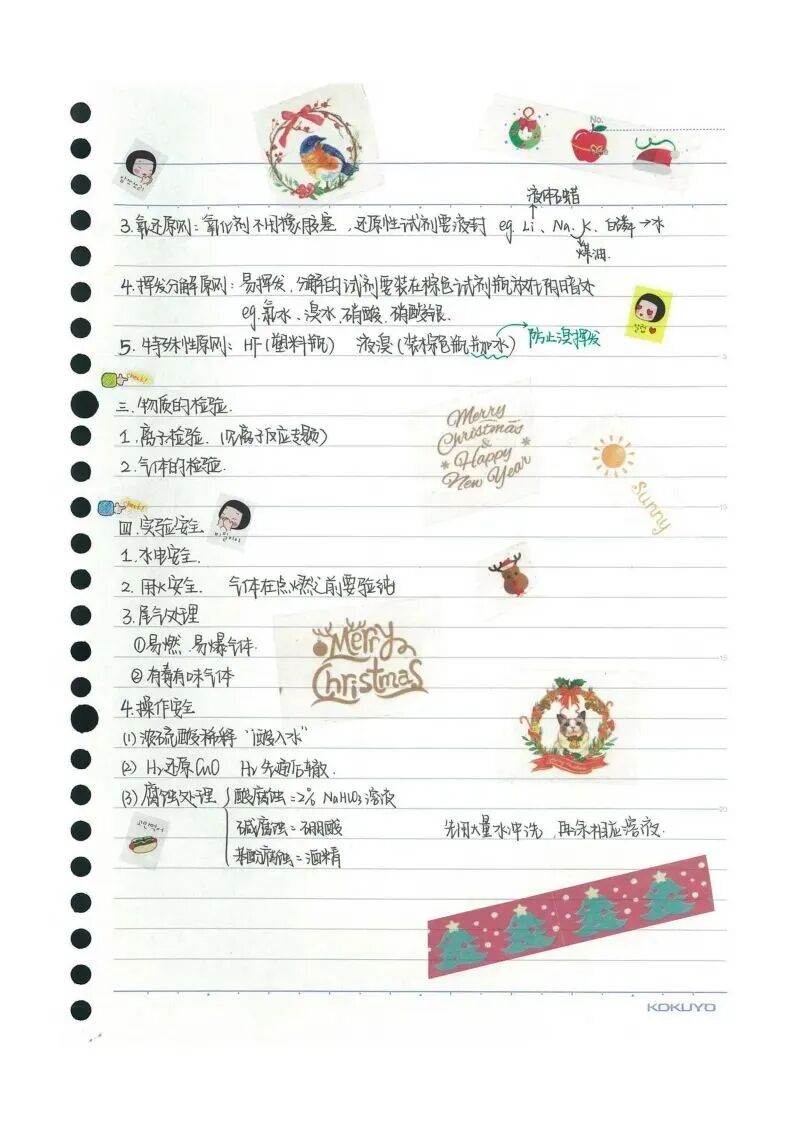 No.
液体石蜡
3.氧还原则：氧化剂不用橡胶塞，还原性试剂要液封 eg. Li、Na、K、白磷→水
煤油.
4.挥发分解原则：易挥发、分解的试剂要装在棕色试剂瓶放在阴暗处
eg.氯水、溴水、硝酸、硝酸银.
5.特殊性原则：HF(塑料瓶) 液溴(装棕色瓶并加水) 防止溴挥发
check!
三.物质的检验.
1.离子检验.(见离子反应专题)
2.气体的检验.
Merry
Christmas
&
Happy
New Year
Sunny
check!
四.实验安全.
1.水电安全.
2.用火安全. 气体在点燃之前要验纯
3.尾气处理
①易燃、易爆气体.
②有毒有味气体
Merry
Christmas
4.操作安全
(1)浓硫酸稀释“酸入水”
(2) H₂还原CuO H₂先通后撤.
(3)腐蚀处理 酸腐蚀=2% NaHCO₃溶液
碱腐蚀=硼酸 先用大量水冲洗，再涂相应溶液.
苯酚腐蚀=酒精
KOKUYO